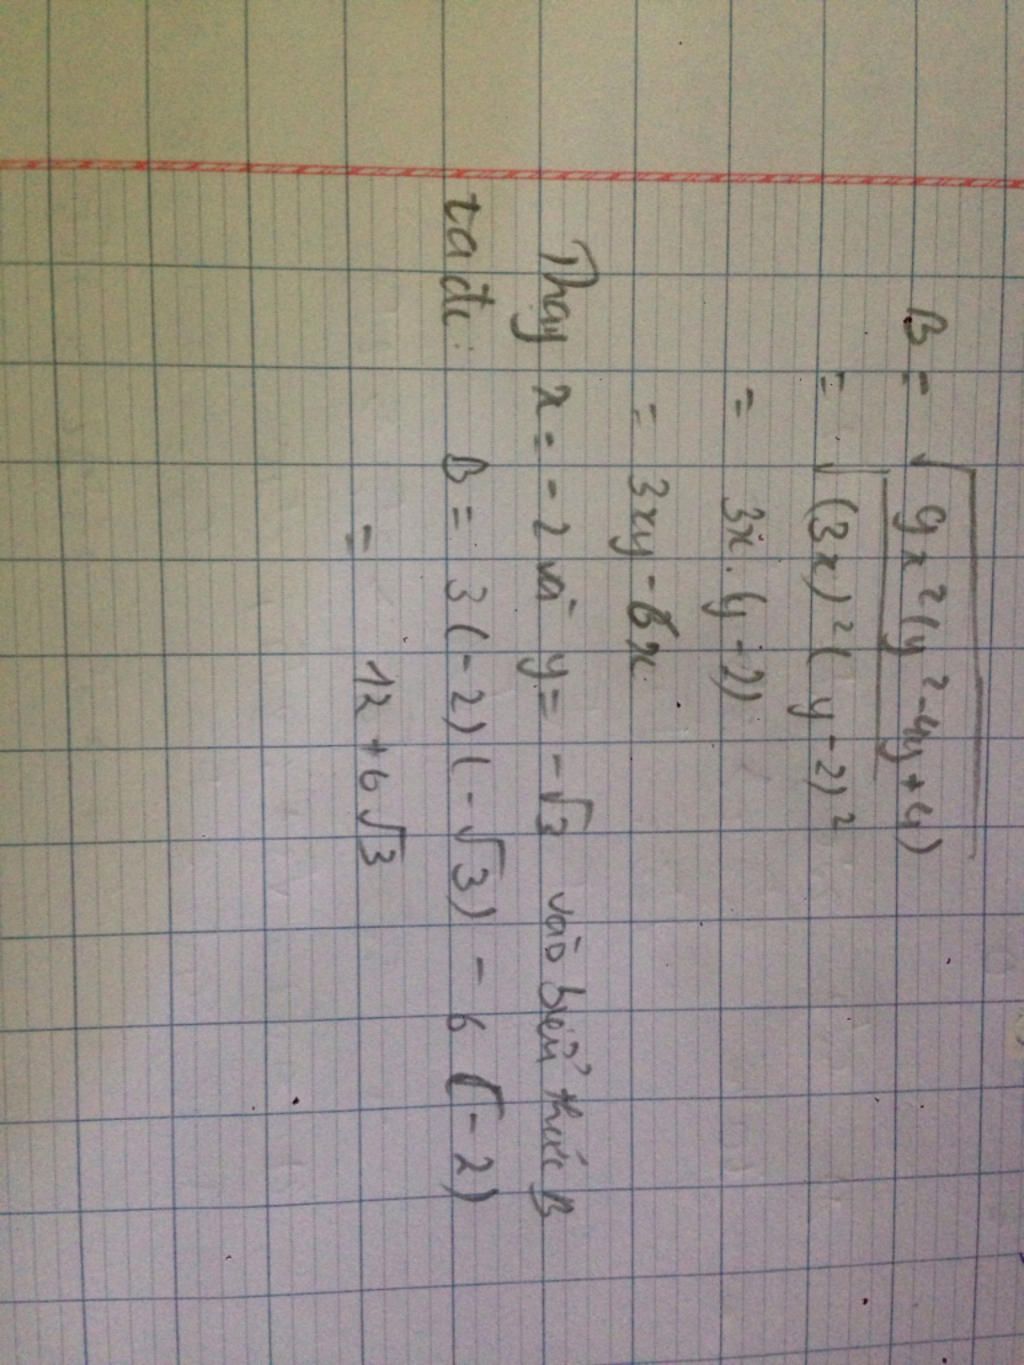 B = √9x²(y²-4y+4)
= √(3x)²(y-2)²
= 3x.(y-2)
= 3xy-6x
Thay x = -2 và y = -√3 vào biểu thức B
ta đc: B = 3(-2)(-√3) - 6(-2)
= 12 + 6√3